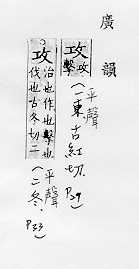 廣韻
攻
攻擊
平聲
(一東古紅切.
P.29)
攻
治也作也擊也
伐也古冬切二
平聲
(二冬.
P.33)